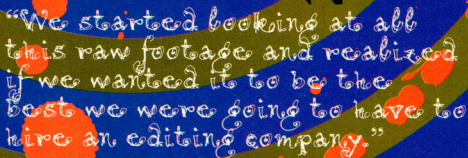 “We started looking at all
this raw footage and realized
if we wanted it to be the
best we were going to have to
hire an editing company.”